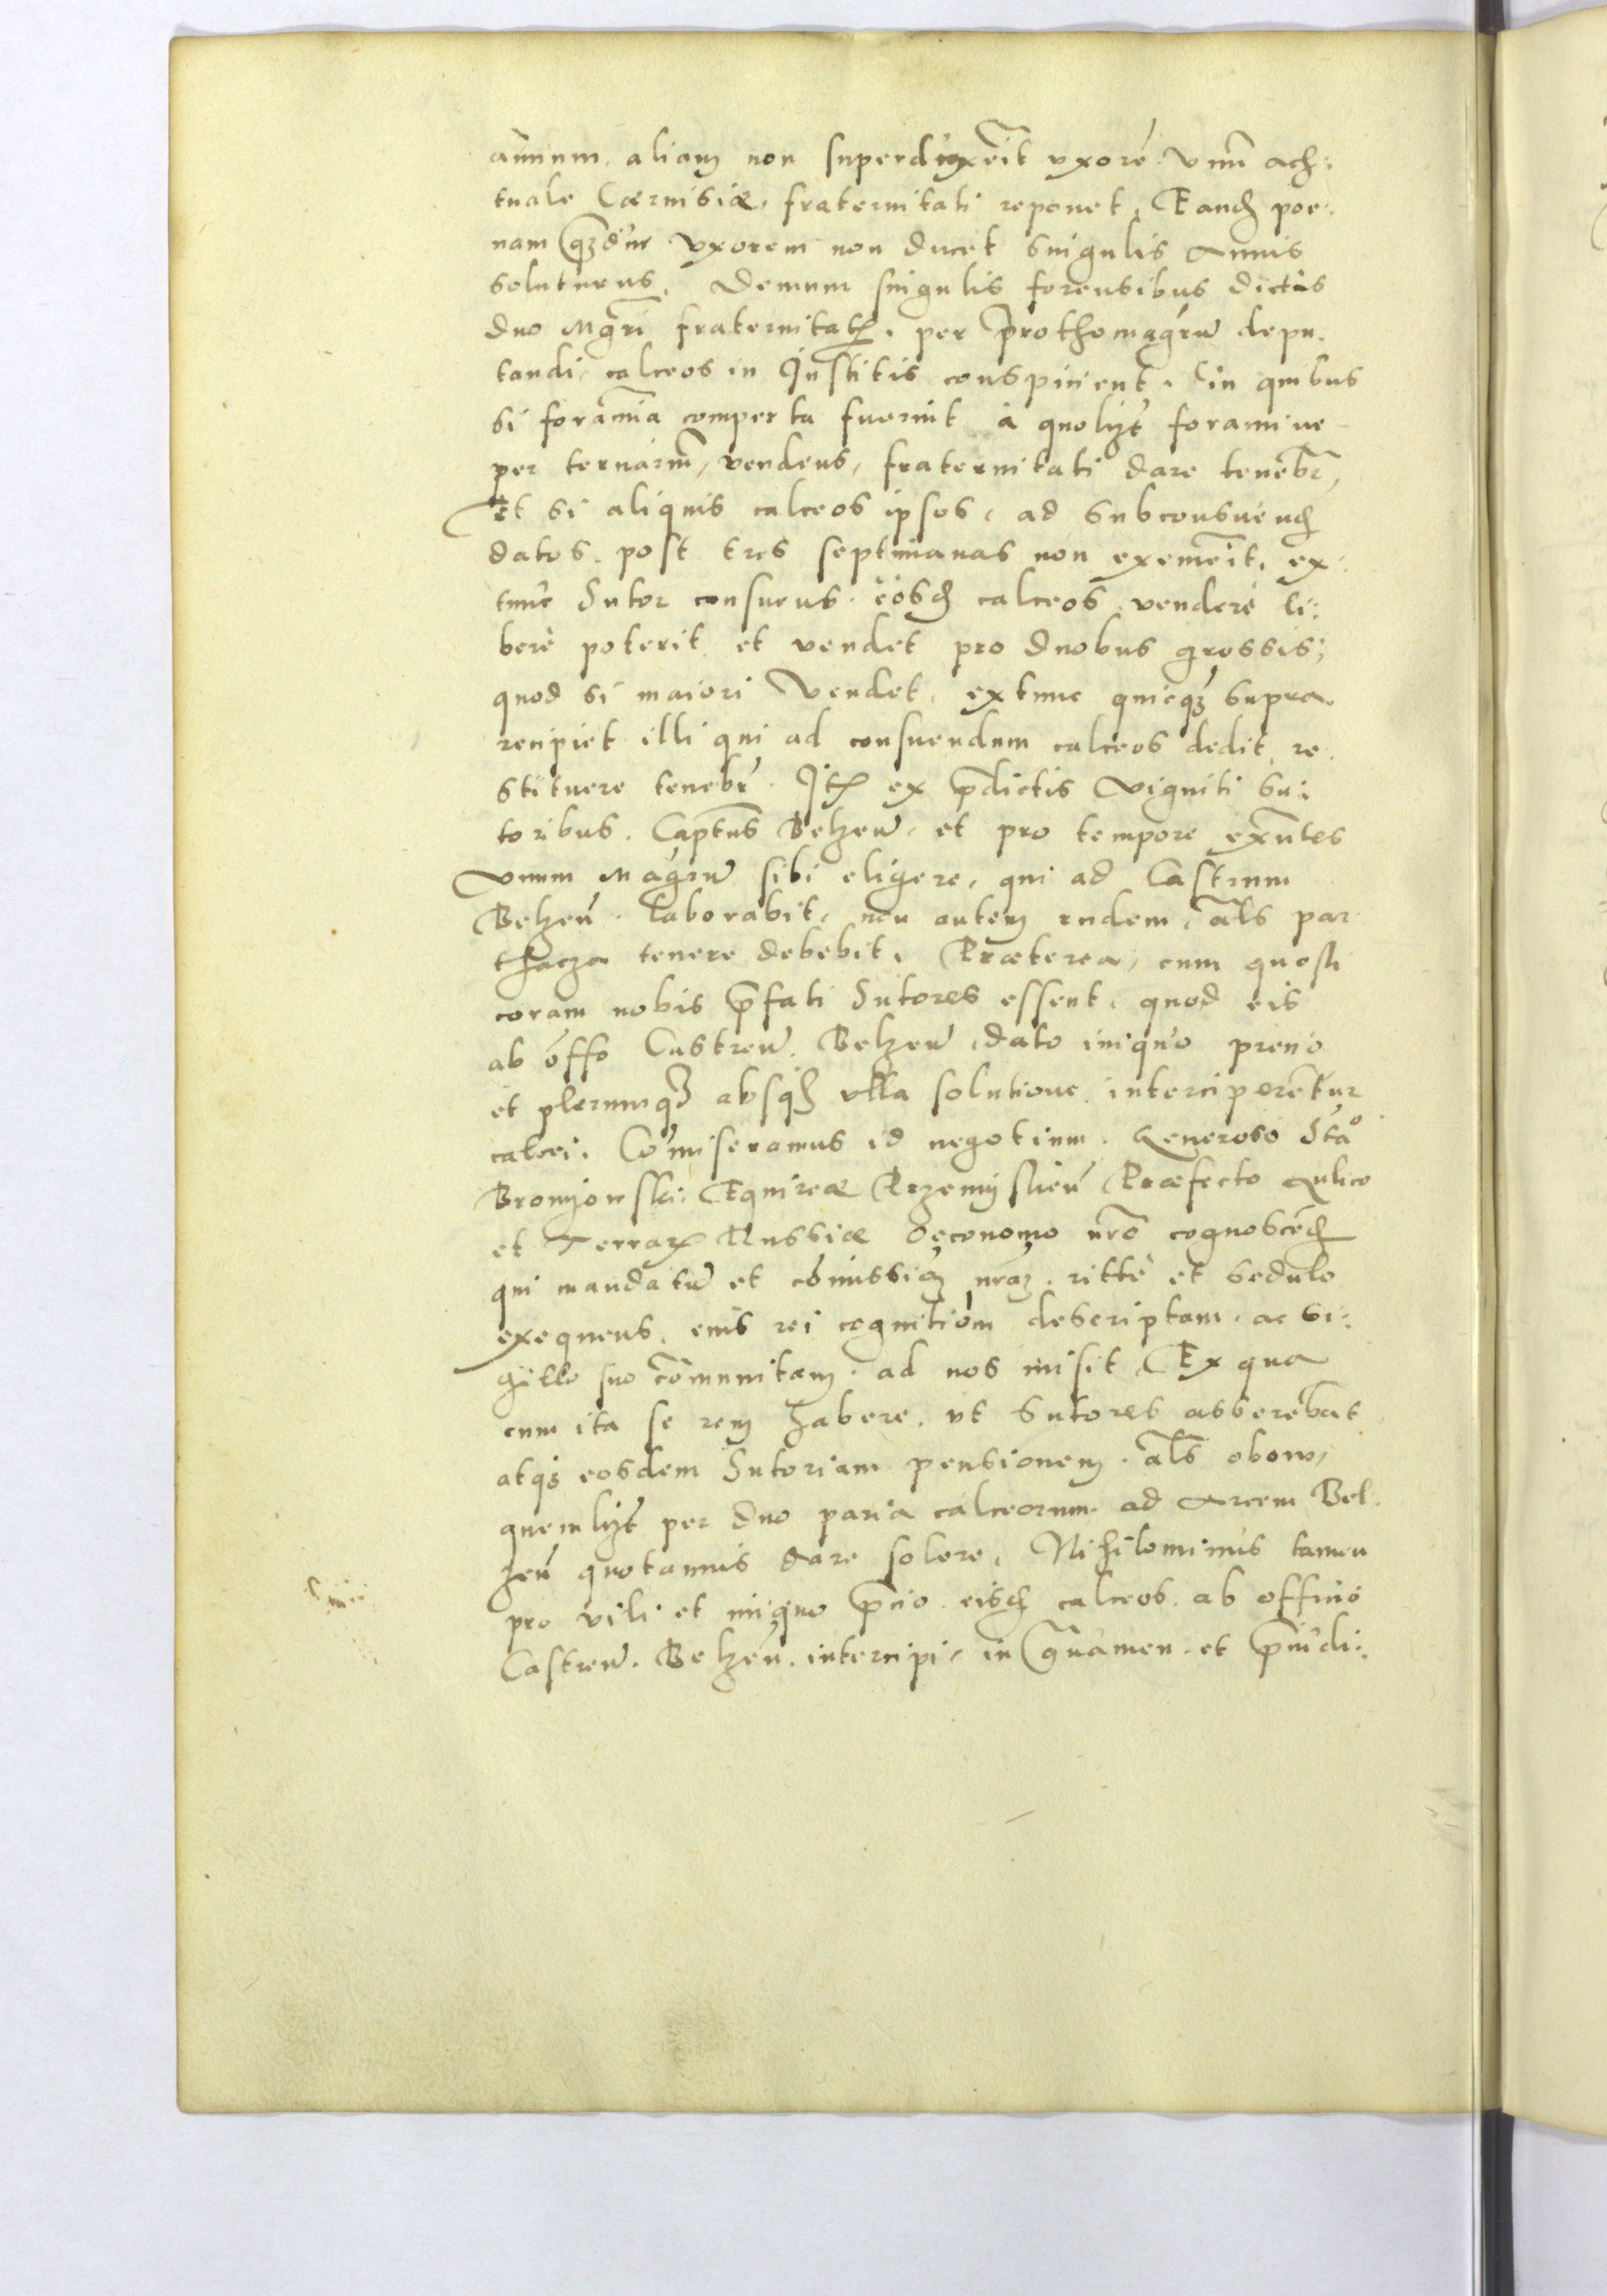 annum. aliam non superduxerit uxorē. Vnū ach:
tuale Cærvisiæ, fraternitati reponet. Eandē poe:
nam qȝdiu Vxorem non ducet singulis Annis
soluturus. Demum singulis forensibus dictis
duo Mgrī fraternitatꝭ. per prothomagrū depu:
tandi, calceos in Institis conspicient. in quibus
si foramīa comperta fuerint à quolibet foramine
per ternariū, vendens, fraternitati dare tenebr̄,
Et si aliquis calceos ipsos, ad subconsuendū
datos. post tres septimanas non exemerit, ex:
tunc Sutor consuens. eosdē calceos vendere li:
berè poterit et vendet pro duobus grossis;
quod si maiori Vendet, extunc quicqȝ supra
recipiet illi qui ad consuendum calceos dedit, re:
stituere tenebr̄. Itē ex p̄dictis Viginti Su:
toribus. Captus Belzeū. et pro tempore exn̄tes
Vnum Magrū sibi eligere, qui ad Castrum
Belzeū. laborabit, non autem eudem, al̄s par
thacza tenere debebit. Præterea, cum questi
coram nobis p̄fati Sutores essent, quod eis
ab offō Castreū. Belzeū, dato iniquo precio
et plerumqȝ absqȝ ulla solutione interciperentur
calcei. Cōmiseramus id negotium. Generoso Stāo
Bromyowski: Equireæ Przemysliēn Præfecto Aulico
et Terrarꝝ Russiæ Oeconomo nr̄o cognoscēdū
qui mandatū et cōmissioē nrām. rittè et sedulo
exequens, eius rei cognitiōm descriptam. ac si:
gillo suo cōmunitam. ad nos misit. Ex qua
cum ita se rem habere. vt Sutores asserebāt
atqȝ eosdem Sutoriam pensionem. al̄s obow,
quemlibet per duo paria calceorum ad Arcem Bel:
zeū quotannis dare solere. Nihilominus tamen
pro vili et iniquo p̄cio eisdē calceos. ab officio
Castreū. Belzeū. intercipi, in grāuamen. et p̄iudi: